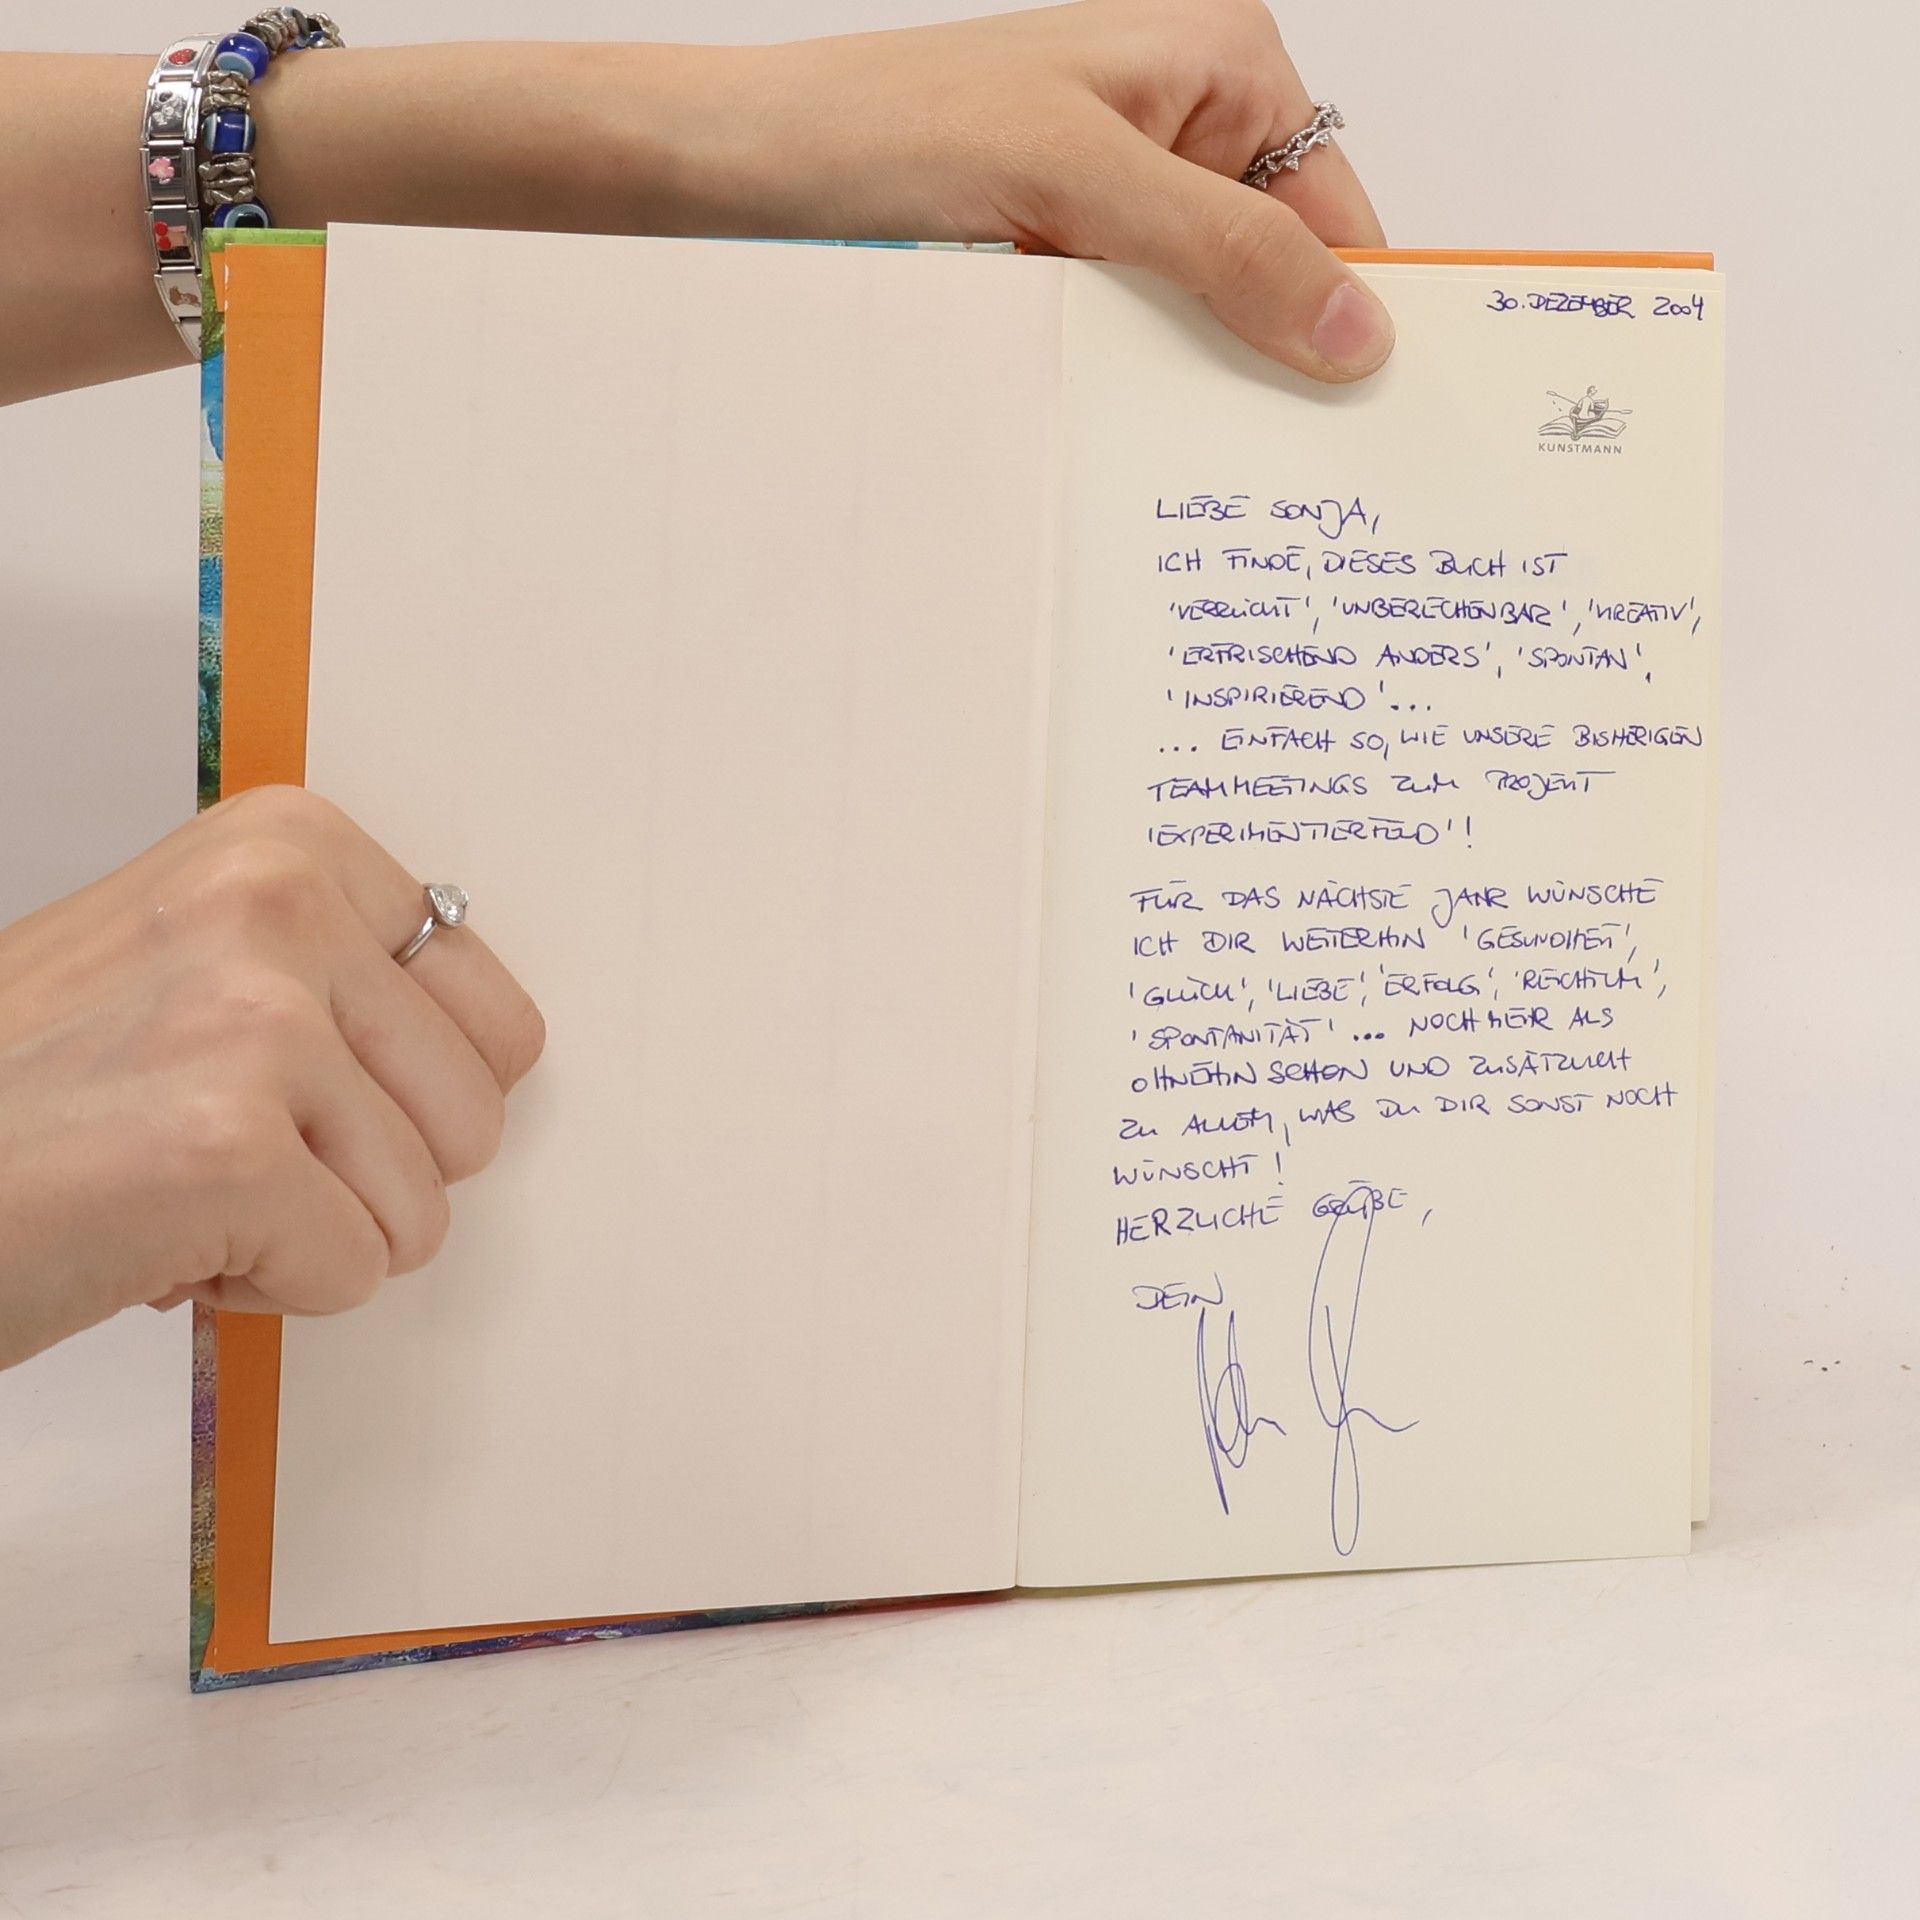 30. DEZEMBER 2004
KUNSTMANN
LIEBE SONJA,
ICH FINDE, DIESES BUCH IST
'VERRÜCKT', 'UNBERECHENBAR', 'KREATIV',
'ERFRISCHEND ANDERS', 'SPONTAN',
'INSPIRIEREND'...
... EINFACH SO, WIE UNSERE BISHERIGEN
TEAMMEETINGS ZUM PROJEKT
'EXPERIMENTIERFELD'!
FÜR DAS NÄCHSTE JAHR WÜNSCHE
ICH DIR WEITERHIN 'GESUNDHEIT',
'GLÜCK', 'LIEBE', 'ERFOLG', 'REICHTUM',
'SPONTANITÄT' ... NOCH MEHR ALS
OHNEHIN SCHON UND ZUSÄTZLICH
ZU ALLEM, WAS DU DIR SONST NOCH
WÜNSCHT!
HERZLICHE GRÜßE,
DEIN